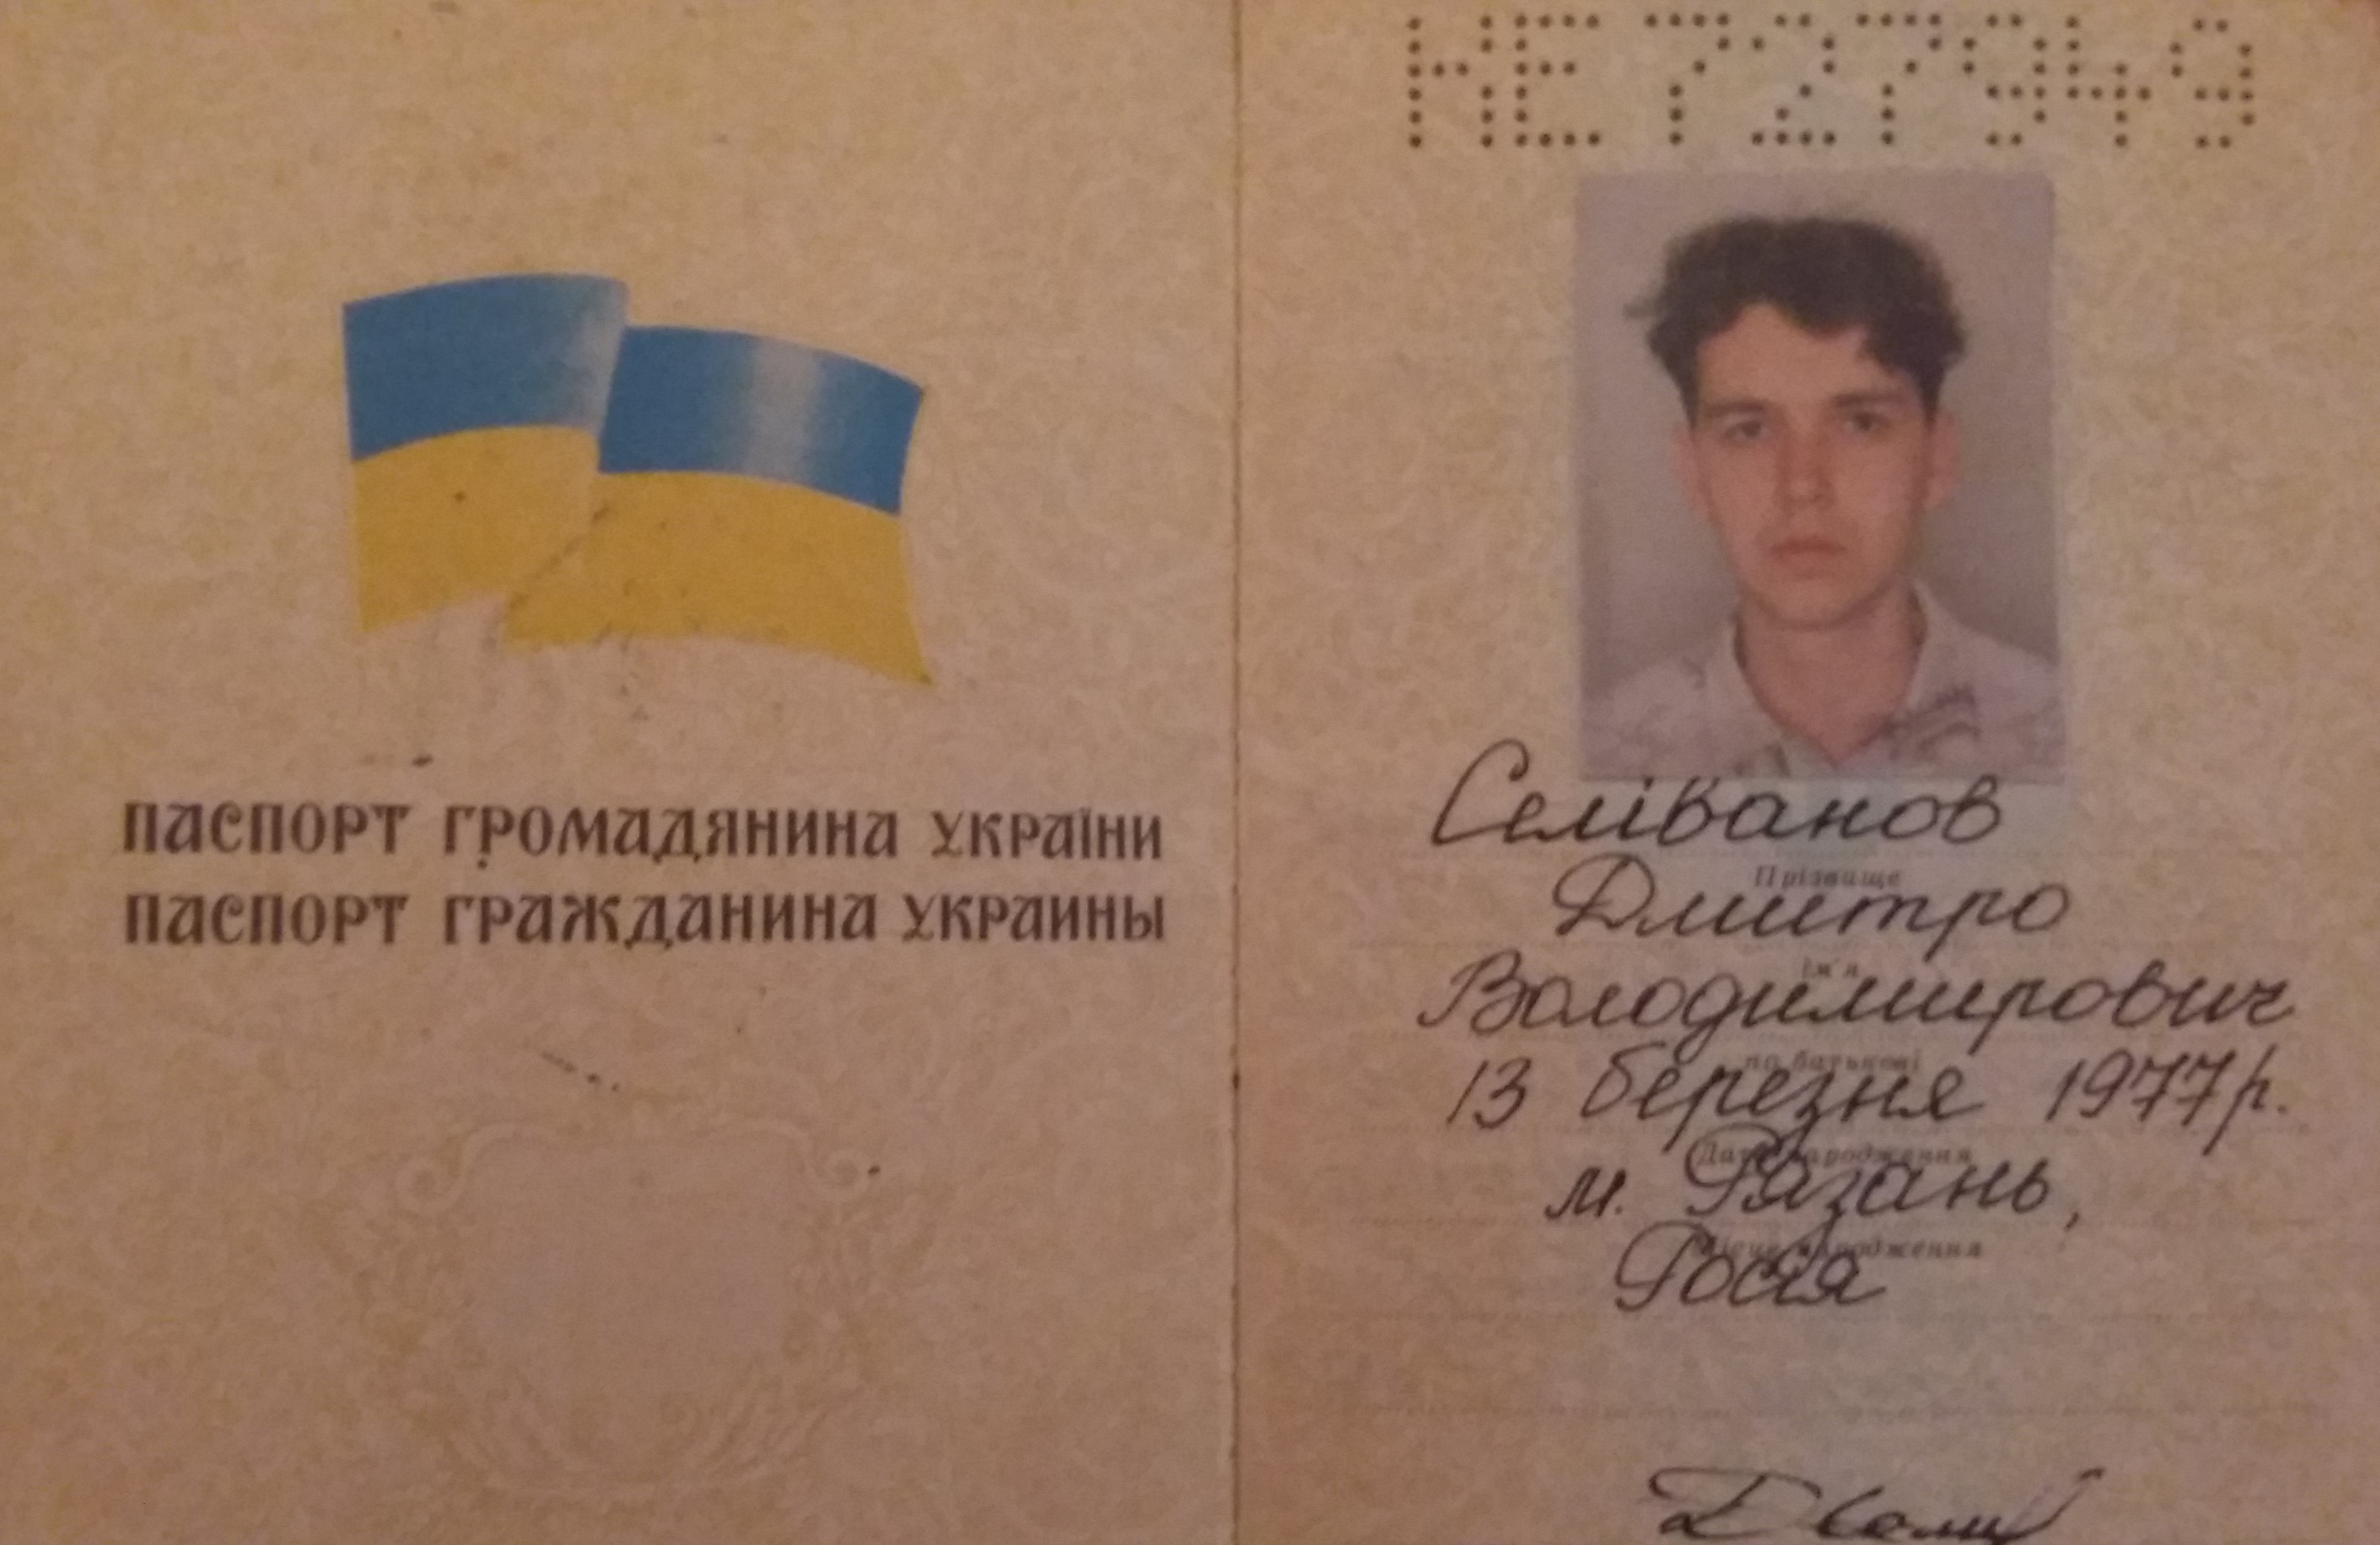 ПАСПОРТ ГРОМАДЯНИНА УКРАЇНИ
ПАСПОРТ ГРАЖДАНИНА УКРАИНЫ
НЕ 727949
Селіванов
Прізвище
Дмитро
Ім'я
Володимирович
по батькові
13 березня 1977 р.
Дата народження
м. Рязань,
Місце народження
Росія